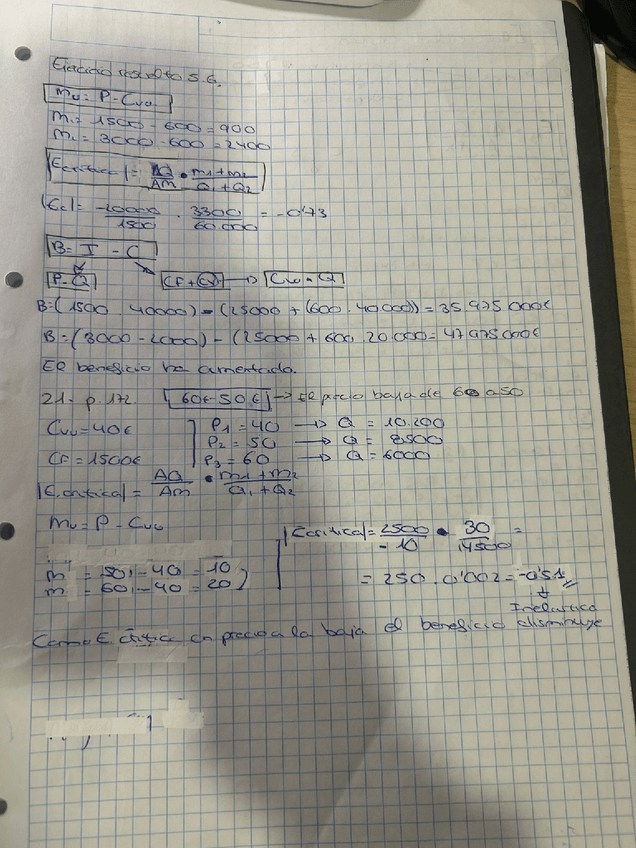 Ejercicio resuelto 5.6.
Mu = P - Cvu
m₁ = 1500 - 600 = 900
m₁ = 3000 - 600 = 2400
|Ecritica| = ΔQ/ΔM · m1+m2/Q1+Q2
|Ec| = -20000/1500 · 3300/60.000 = -0'73
B = I - C
P·Q CF + CV → Cvu · Q
B = (1500 . 40000) - (25000 + (600 . 40000)) = 35.975.000€
B = (3000 - 2000) - (25000 + 600 . 20.000 = 47.975.000€
El beneficio ha aumentado.
21 - p. 172 60€ - 50€ → El precio baja de 60 a 50
Cvu = 40€ P1 = 40 → Q = 10.200
P2 = 50 → Q = 8500
CF = 1500€ P3 = 60 → Q = 6000
|E.critica| = ΔQ/Δm · m1+m2/Q1+Q2
Mu = P - Cvu
|Ecritica| = 2500/-10 · 30/14500 =
m = 50 - 40 = 10
m = 60 - 40 = 20
= 250 . 0'002 = -0'51
Inelastica
Como E critica en precio a la baja el beneficio disminuye